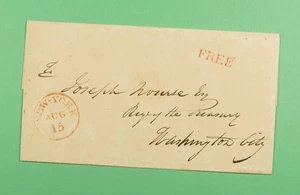 FREE
To
Joseph Nourse Esq
Regr of the Treasury
Washington City
NEW-YORK
AUG
15